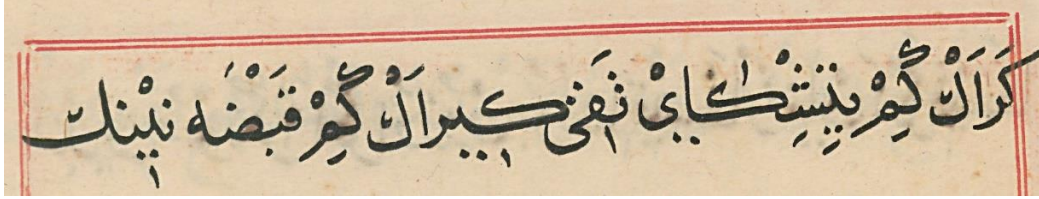 كَرَاَلْ كِمْ يتِشْكاىْ نَفخى كبيراَلْ كِمْ قَبْضَه نيْنك